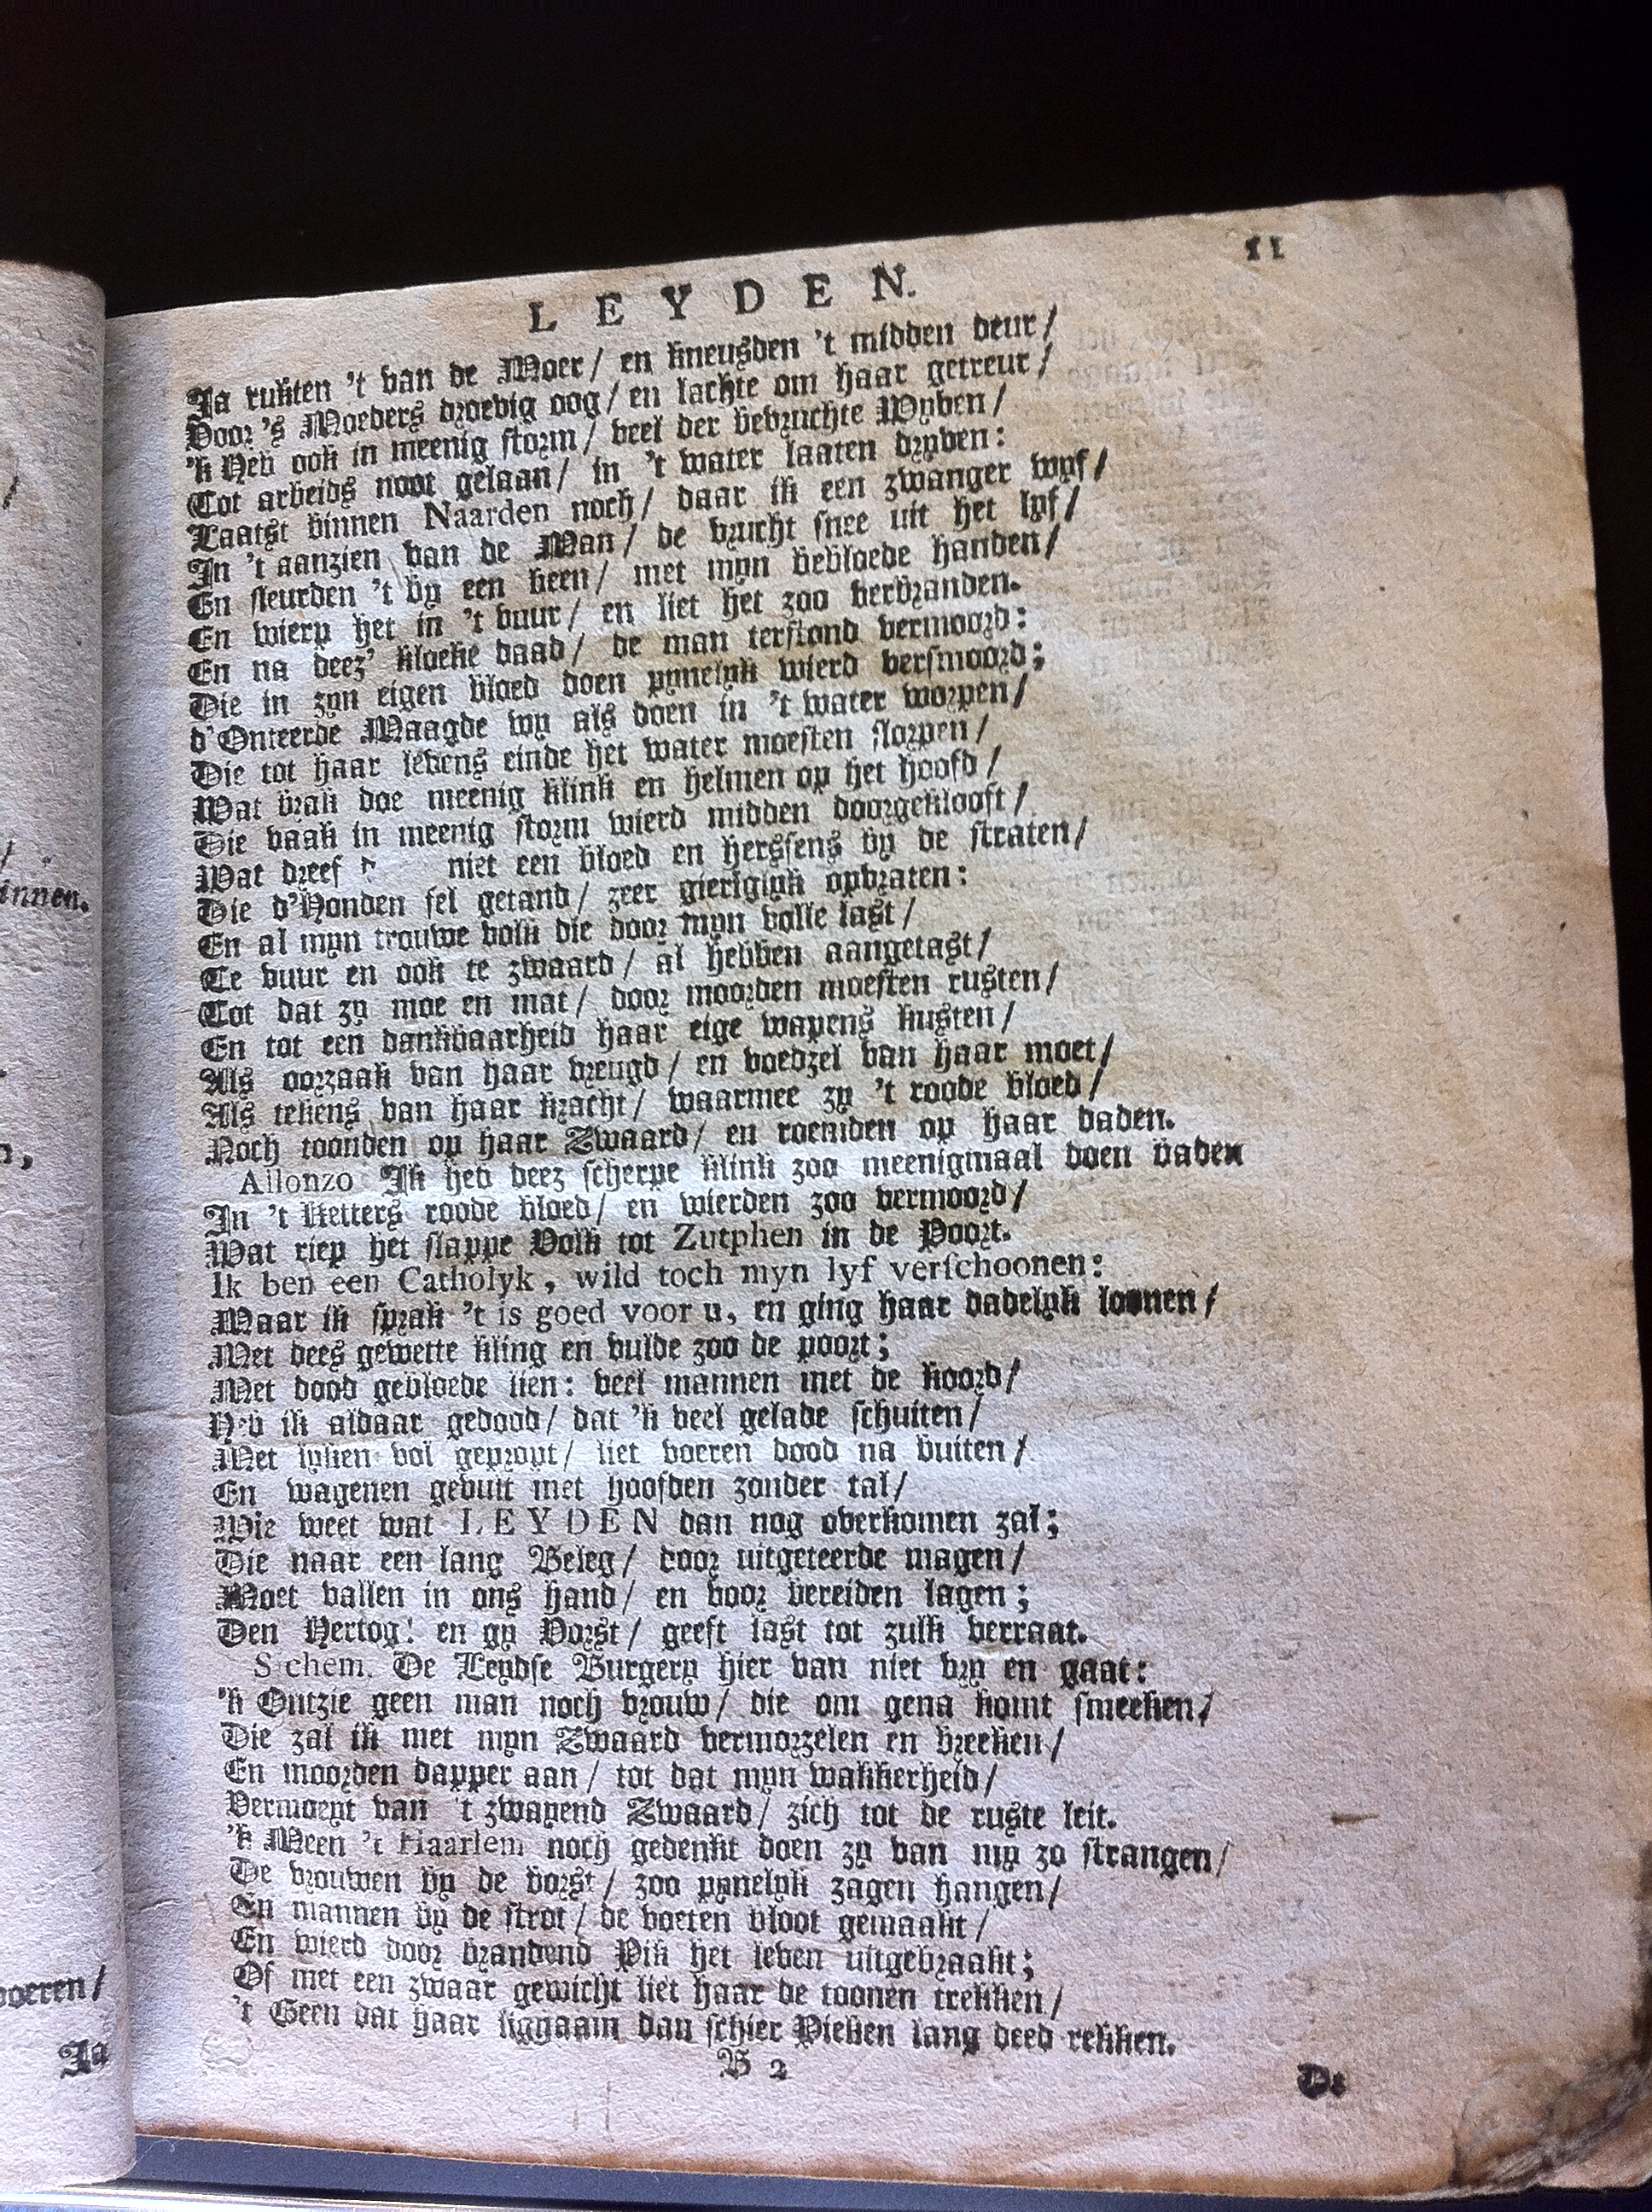 LEYDEN. 11
Ja rukten 't van de Moer/ en kneusden 't midden deur/
Voor 's Moeders droevig oog/ en lachte om haar getreur/
'k Heb ook in meenig storm/ veel der bevruchte Wyven/
Tot arbeids noot gelaan/ in 't water laaten dryven:
Laatst binnen Naarden noch/ daar ik een zwanger wyf/
In 't aanzien van de Man/ de vrucht snee uit het lyf/
En sleurden 't by een been/ met myn bebloede handen/
En wierp het in 't vuur/ en liet het zoo verbranden.
En na deez' kloeke daad/ de man terstond vermoord:
Die in zyn eigen bloed doen pynelyk wierd versmoord;
d'Onteerde Maagde wy als doen in 't water worpen/
Die tot haar levens einde het water moesten slorpen/
Wat brak doe meenig klink en helmen op het hoofd/
Die vaak in meenig storm wierd midden doorgeklooft/
Wat dreef niet een bloed en herssens by de straten/
Die d'Honden fel getand/ zeer gieriglyk opvraten:
En al myn trouwe volk die door myn volle last/
Te vuur en ook te zwaard/ al hebben aangetast/
Tot dat zy moe en mat/ door moorden moesten rusten/
En tot een dankbaarheid haar eige wapens kusten/
Als oorzaak van haar vreugd/ en voedzel van haar moet/
Als tekens van haar kracht/ waarmee zy 't roode bloed/
Noch toonden op haar Zwaard/ en roemden op haar daden.
Allonzo Ik heb deez scherpe klink zoo meenigmaal doen baden
In 't Ketters roode bloed/ en wierden zoo vermoord/
Wat riep het slappe Volk tot Zutphen in de Poort.
Ik ben een Catholyk, wild toch myn lyf verschoonen:
Maar ik sprak 't is goed voor u, en ging haar dadelyk loonen/
Met dees gewette kling en vulde zoo de poort;
Met dood gebloede lien: veel mannen met de koord/
Heb ik aldaar gedood/ dat 'k veel gelade schuiten/
Met lyken vol gepropt/ liet voeren dood na buiten/
En wagenen gevult met hoofden zonder tal/
Wie weet wat LEYDEN dan nog overkomen zal;
Die naar een lang Beleg/ door uitgeteerde magen/
Moet vallen in ons hand/ en voor bereiden lagen;
Den Hertog! en gy Vorst/ geeft last tot zulk verraat.
Sichem. De Leydse Burgery hier van niet vry en gaat:
'k Ontzie geen man noch vrouw/ die om gena komt smeeken/
Die zal ik met myn Zwaard vermorzelen en breeken/
En moorden dapper aan/ tot dat myn wakkerheid/
Vermoeyt van 't zwayend Zwaard/ zich tot de ruste leit.
'k Meen 't Haarlem noch gedenkt doen zy van my zo strangen/
De vrouwen by de borst/ zoo pynelyk zagen hangen/
En mannen by de strot/ de voeten bloot gemaakt/
En wierd door brandend Pik het leven uitgebraakt;
Of met een zwaar gewicht liet haar de toonen trekken/
't Geen dat haar liggaam dan schier Pieken lang deed rekken.
B 2
De
innen.
voeren/
Ja